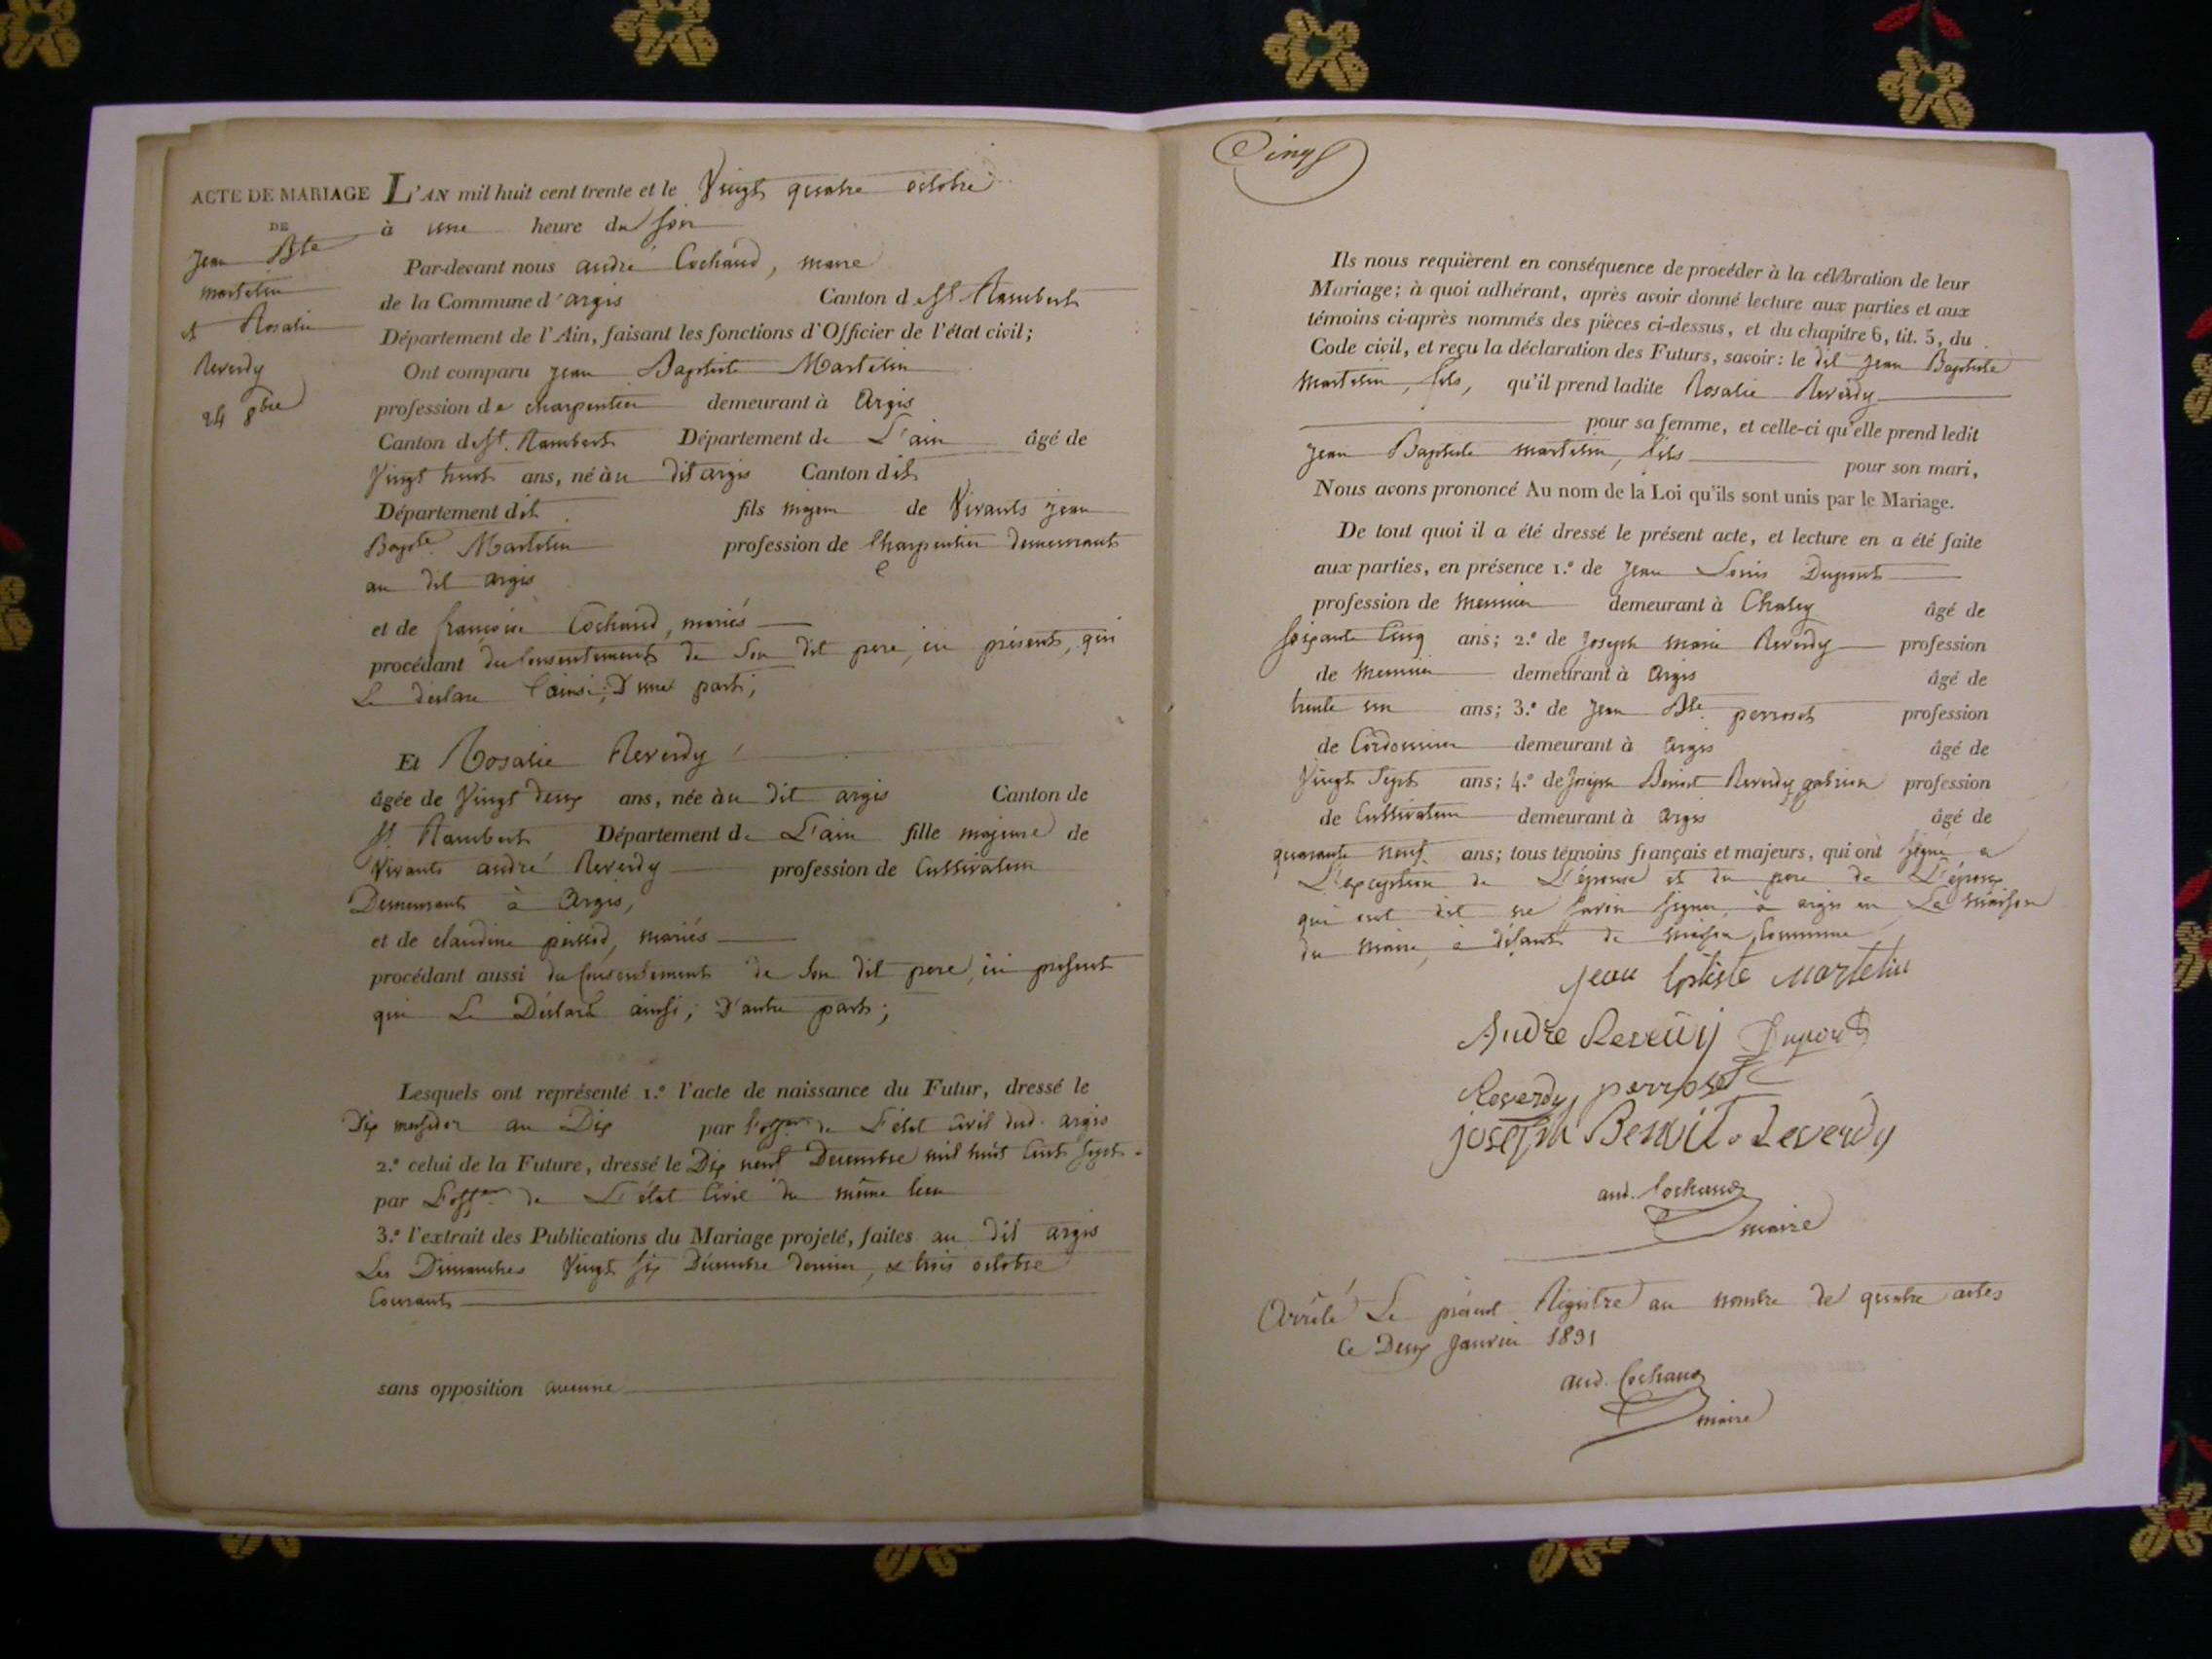 ACTE DE MARIAGE
DE
Jean Bte
martelin
et Rosalie
Reverdy
24 8bre
L'AN mil huit cent trente et le Vingt quatre octobre
à une heure du soir
Par-devant nous andré Cochaud, maire
de la Commune d'argis Canton de St Rambert
Département de l'Ain, faisant les fonctions d'Officier de l'état civil;
Ont comparu jean Baptiste Martelin
profession de charpentier demeurant à Argis
Canton de St. Rambert Département de L'ain âgé de
Vingt huit ans, né àu dit argis Canton dit
Département dit fils majeur de Vivants jean
Bapte. Martelin profession de Charpentier demeurant
au dit argis
et de françoise Cochaud, mariés
procédant du Consentement de Son dit pere, ici présent, qui
Le déclare ainsi; D'une part;
Et Rosalie Reverdy
âgée de Vingt deux ans, née àu dit argis Canton de
St. Rambert Département de L'ain fille majeure de
Vivants andré Reverdy profession de Cultivateur
Demeurant à Argis,
et de claudine mariés
procédant aussi du Consentement de Son dit pere, ici present
qui Le Déclare ainsi; D'autre part;
Lesquels ont représenté 1.° l'acte de naissance du Futur, dressé le
Dix messidor an Dix par l'offer. de L'état civil dud. argis
2.° celui de la Future, dressé le Dix neuf Decembre mil huit Cent Sept
par L'offer. de L'état Civil du même lieu
3.° l'extrait des Publications du Mariage projeté, faites au dit argis
Les Dimanches Vingt Six dernier, & trois octobre
Courant
sans opposition aucune
Cinq
Ils nous requièrent en conséquence de procéder à la célébration de leur
Mariage; à quoi adhérant, après avoir donné lecture aux parties et aux
témoins ci-après nommés des pièces ci-dessus, et du chapitre 6, tit. 5, du
Code civil, et reçu la déclaration des Futurs, savoir: le dit Jean Baptiste
Martelin, fils, qu'il prend ladite Rosalie Reverdy
pour sa femme, et celle-ci qu'elle prend ledit
Jean Baptiste martelin, fils pour son mari,
Nous avons prononcé Au nom de la Loi qu'ils sont unis par le Mariage.
De tout quoi il a été dressé le présent acte, et lecture en a été faite
aux parties, en présence 1.° de Jean Louis Dupont
profession de Meunier demeurant à Chaley âgé de
Soixante Cinq ans; 2.° de Joseph marie Reverdy profession
de Meunier demeurant à Argis âgé de
trente un ans; 3.° de Jean Bte. perroset profession
de Cordonnier demeurant à argis âgé de
Vingt Sept ans; 4.° de Joseph Benoit Reverdy profession
de Cultivateur demeurant à argis âgé de
quarante neuf ans; tous témoins français et majeurs, qui ont Signé a
L'exception de L'épouse et du pere de L'époux
qui ont dit ne Savoir Signer, à argis en La maison
du maire, à défaut de maison Commune
jean Bptiste martelin
Andre Reverdy Dupont
Reverdy perroset
joseph Benoit Reverdy
and. Cochaud
maire
Arrêté Le présent Registre au nombre de quatre actes
Ce Deux Janvier 1831
and. Cochaud
maire